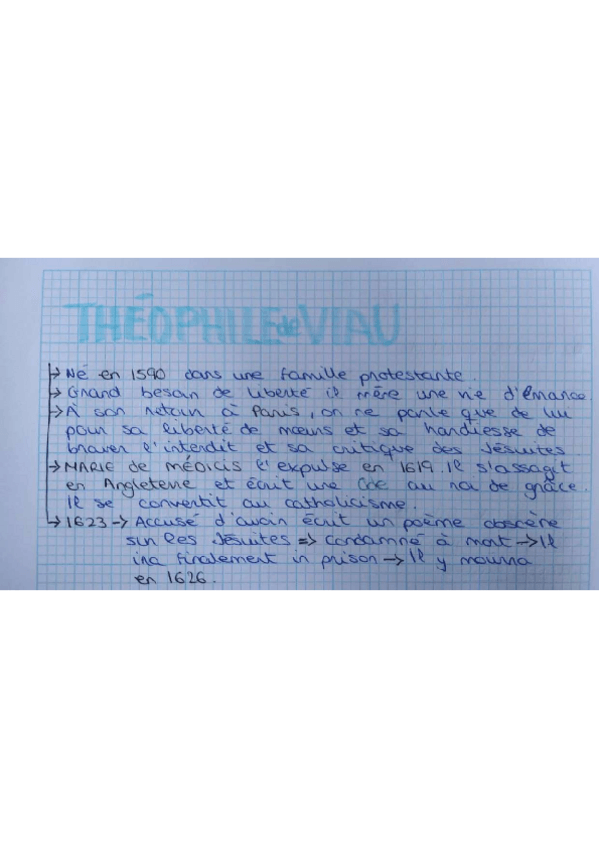 THÉOPHILE de VIAU
→ Né en 1590 dans une famille protestante.
→ Grand besoin de liberté il mène une vie d'érrance
→ À son retour à Paris, on ne parle que de lui
pour sa liberté de mœurs et sa hardiesse de
braver l'interdit et sa critique des Jésuites
→ MARIE de MÉDICIS l'expulse en 1619. Il s'assagit
en Angleterre et écrit une Ode au roi de grâce.
Il se convertit au catholicisme.
→ 1623 → Accusé d'avoir écrit un poème obscène
sur les Jésuites => Condamné à mort → Il
ira finalement in prison → Il y mourra
en 1626.